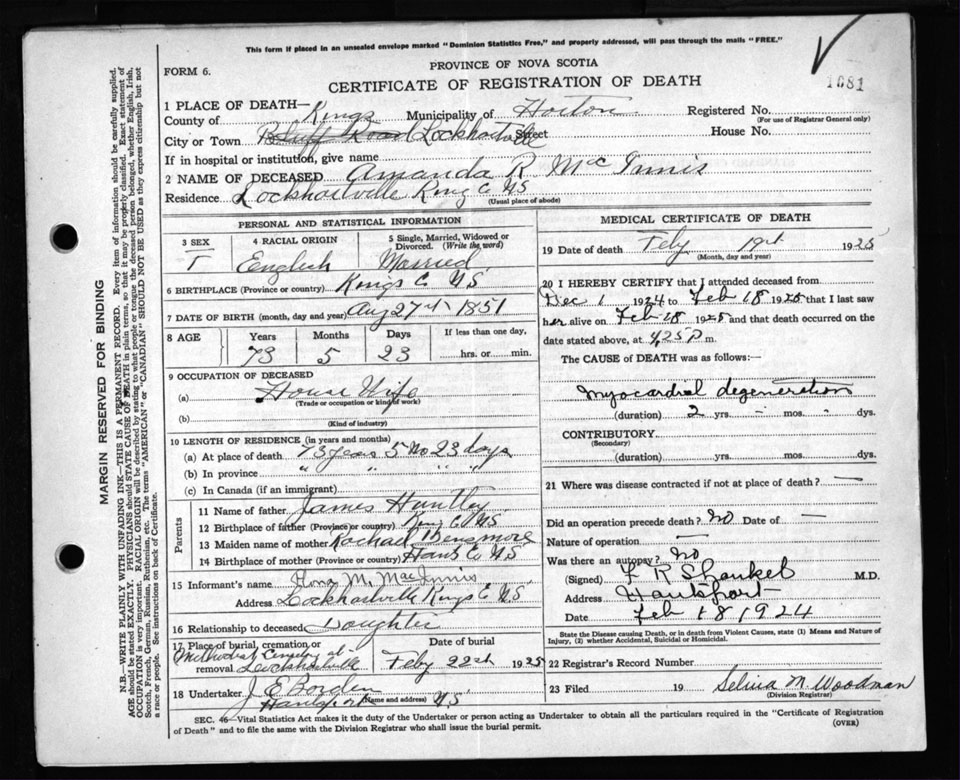 This form if placed in an unsealed envelope marked "Dominion Statistics Free," and properly addressed, will pass through the mails "FREE."
FORM 6.
PROVINCE OF NOVA SCOTIA
CERTIFICATE OF REGISTRATION OF DEATH
1681
1 PLACE OF DEATH—
County of Kings Municipality of Horton Registered No.
(For use of Registrar General only)
City or Town Bluff Road Lockhartville Street House No.
If in hospital or institution, give name
2 NAME OF DECEASED Amanda R. McInnis
Residence Lockhartville King C NS
(Usual place of abode)
PERSONAL AND STATISTICAL INFORMATION
3 SEX 4 RACIAL ORIGIN 5 Single, Married, Widowed or Divorced. (Write the word)
F English Married
6 BIRTHPLACE (Province or country) Kings C NS
7 DATE OF BIRTH (month, day and year) Aug 27th 1851
8 AGE Years Months Days If less than one day,
73 5 23 hrs. or min.
9 OCCUPATION OF DECEASED
(a) House Wife
(Trade or occupation or kind of work)
(b)
(Kind of industry)
10 LENGTH OF RESIDENCE (in years and months)
(a) At place of death 73 years 5 Mo 23 days
(b) In province " " " "
(c) In Canada (if an immigrant)
Parents
11 Name of father James Huntley
12 Birthplace of father (Province or country) King C NS
13 Maiden name of mother Rachael Densmore
14 Birthplace of mother (Province or country) Hants Co NS
15 Informant's name M. MacInnis
Address Lockhartville Kings C NS
16 Relationship to deceased Daughter
17 Place of burial, cremation or removal Methodist Cemetery at Lockhartville
Date of burial Feby 22nd 1925
18 Undertaker J E Borden
(Name and address) Hantsport NS
MEDICAL CERTIFICATE OF DEATH
19 Date of death Feby 19th 1925
(Month, day and year)
20 I HEREBY CERTIFY that I attended deceased from
Dec 1 1924 to Feb 18 1925 that I last saw
her alive on Feb 18 1925 and that death occurred on the
date stated above, at 4.25 P m.
The CAUSE of DEATH was as follows:
Myocardial degeneration
(duration) 2 yrs. - mos. - dys.
CONTRIBUTORY
(Secondary)
(duration) yrs. mos. dys.
21 Where was disease contracted if not at place of death? —
Did an operation precede death? No Date of —
Nature of operation —
Was there an autopsy? No
(Signed) F R Shankel M.D.
Address Hantsport
Date Feb 18 1924
State the Disease causing Death, or in death from Violent Causes, state (1) Means and Nature of
Injury, (2) whether Accidental, Suicidal or Homicidal.
22 Registrar's Record Number
23 Filed 19 Selina M. Woodman
(Division Registrar)
SEC. 46—Vital Statistics Act makes it the duty of the Undertaker or person acting as Undertaker to obtain all the particulars required in the "Certificate of Registration
of Death" and to file the same with the Division Registrar who shall issue the burial permit.
(OVER)
MARGIN RESERVED FOR BINDING
N.B.—WRITE PLAINLY WITH UNFADING INK—THIS IS A PERMANENT RECORD. Every item of information should be carefully supplied.
AGE should be stated EXACTLY. PHYSICIANS should STATE CAUSE OF DEATH in plain terms, so that it may be properly classified. Exact statement of
OCCUPATION is very important. RACIAL ORIGIN will be described by stating to what people or tongue the deceased person belonged, whether English, Irish,
Scotch, French, German, Russian, Ruthenian, etc. The terms "AMERICAN" or "CANADIAN" SHOULD NOT BE USED as they express citizenship but not
a race or people. See instructions on back of Certificate.